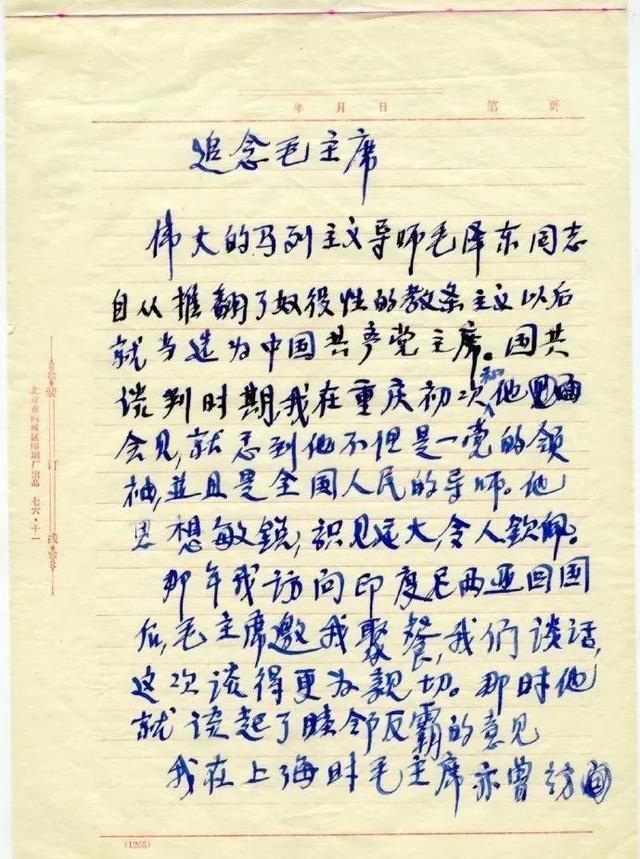 年 月 日 第 页
追念毛主席
伟大的马列主义导师毛泽东同志
自从推翻了奴役性的教条主义以后
就当选为中国共产党主席。国共
谈判时期,我在重庆初次和他
会见,就感到他不但是一党的领
袖,並且是全国人民的导师。他
思想敏锐,识见远大,令人钦佩。
那年我访问印度尼西亚回国
后,毛主席邀我聚餐,我们谈话,
这次谈得更为親切。那时他
就谈起了睦邻反霸的意见
我在上海时毛主席亦曾访
装订线
北京市西城区印刷厂出品 七六·十一
(1265)